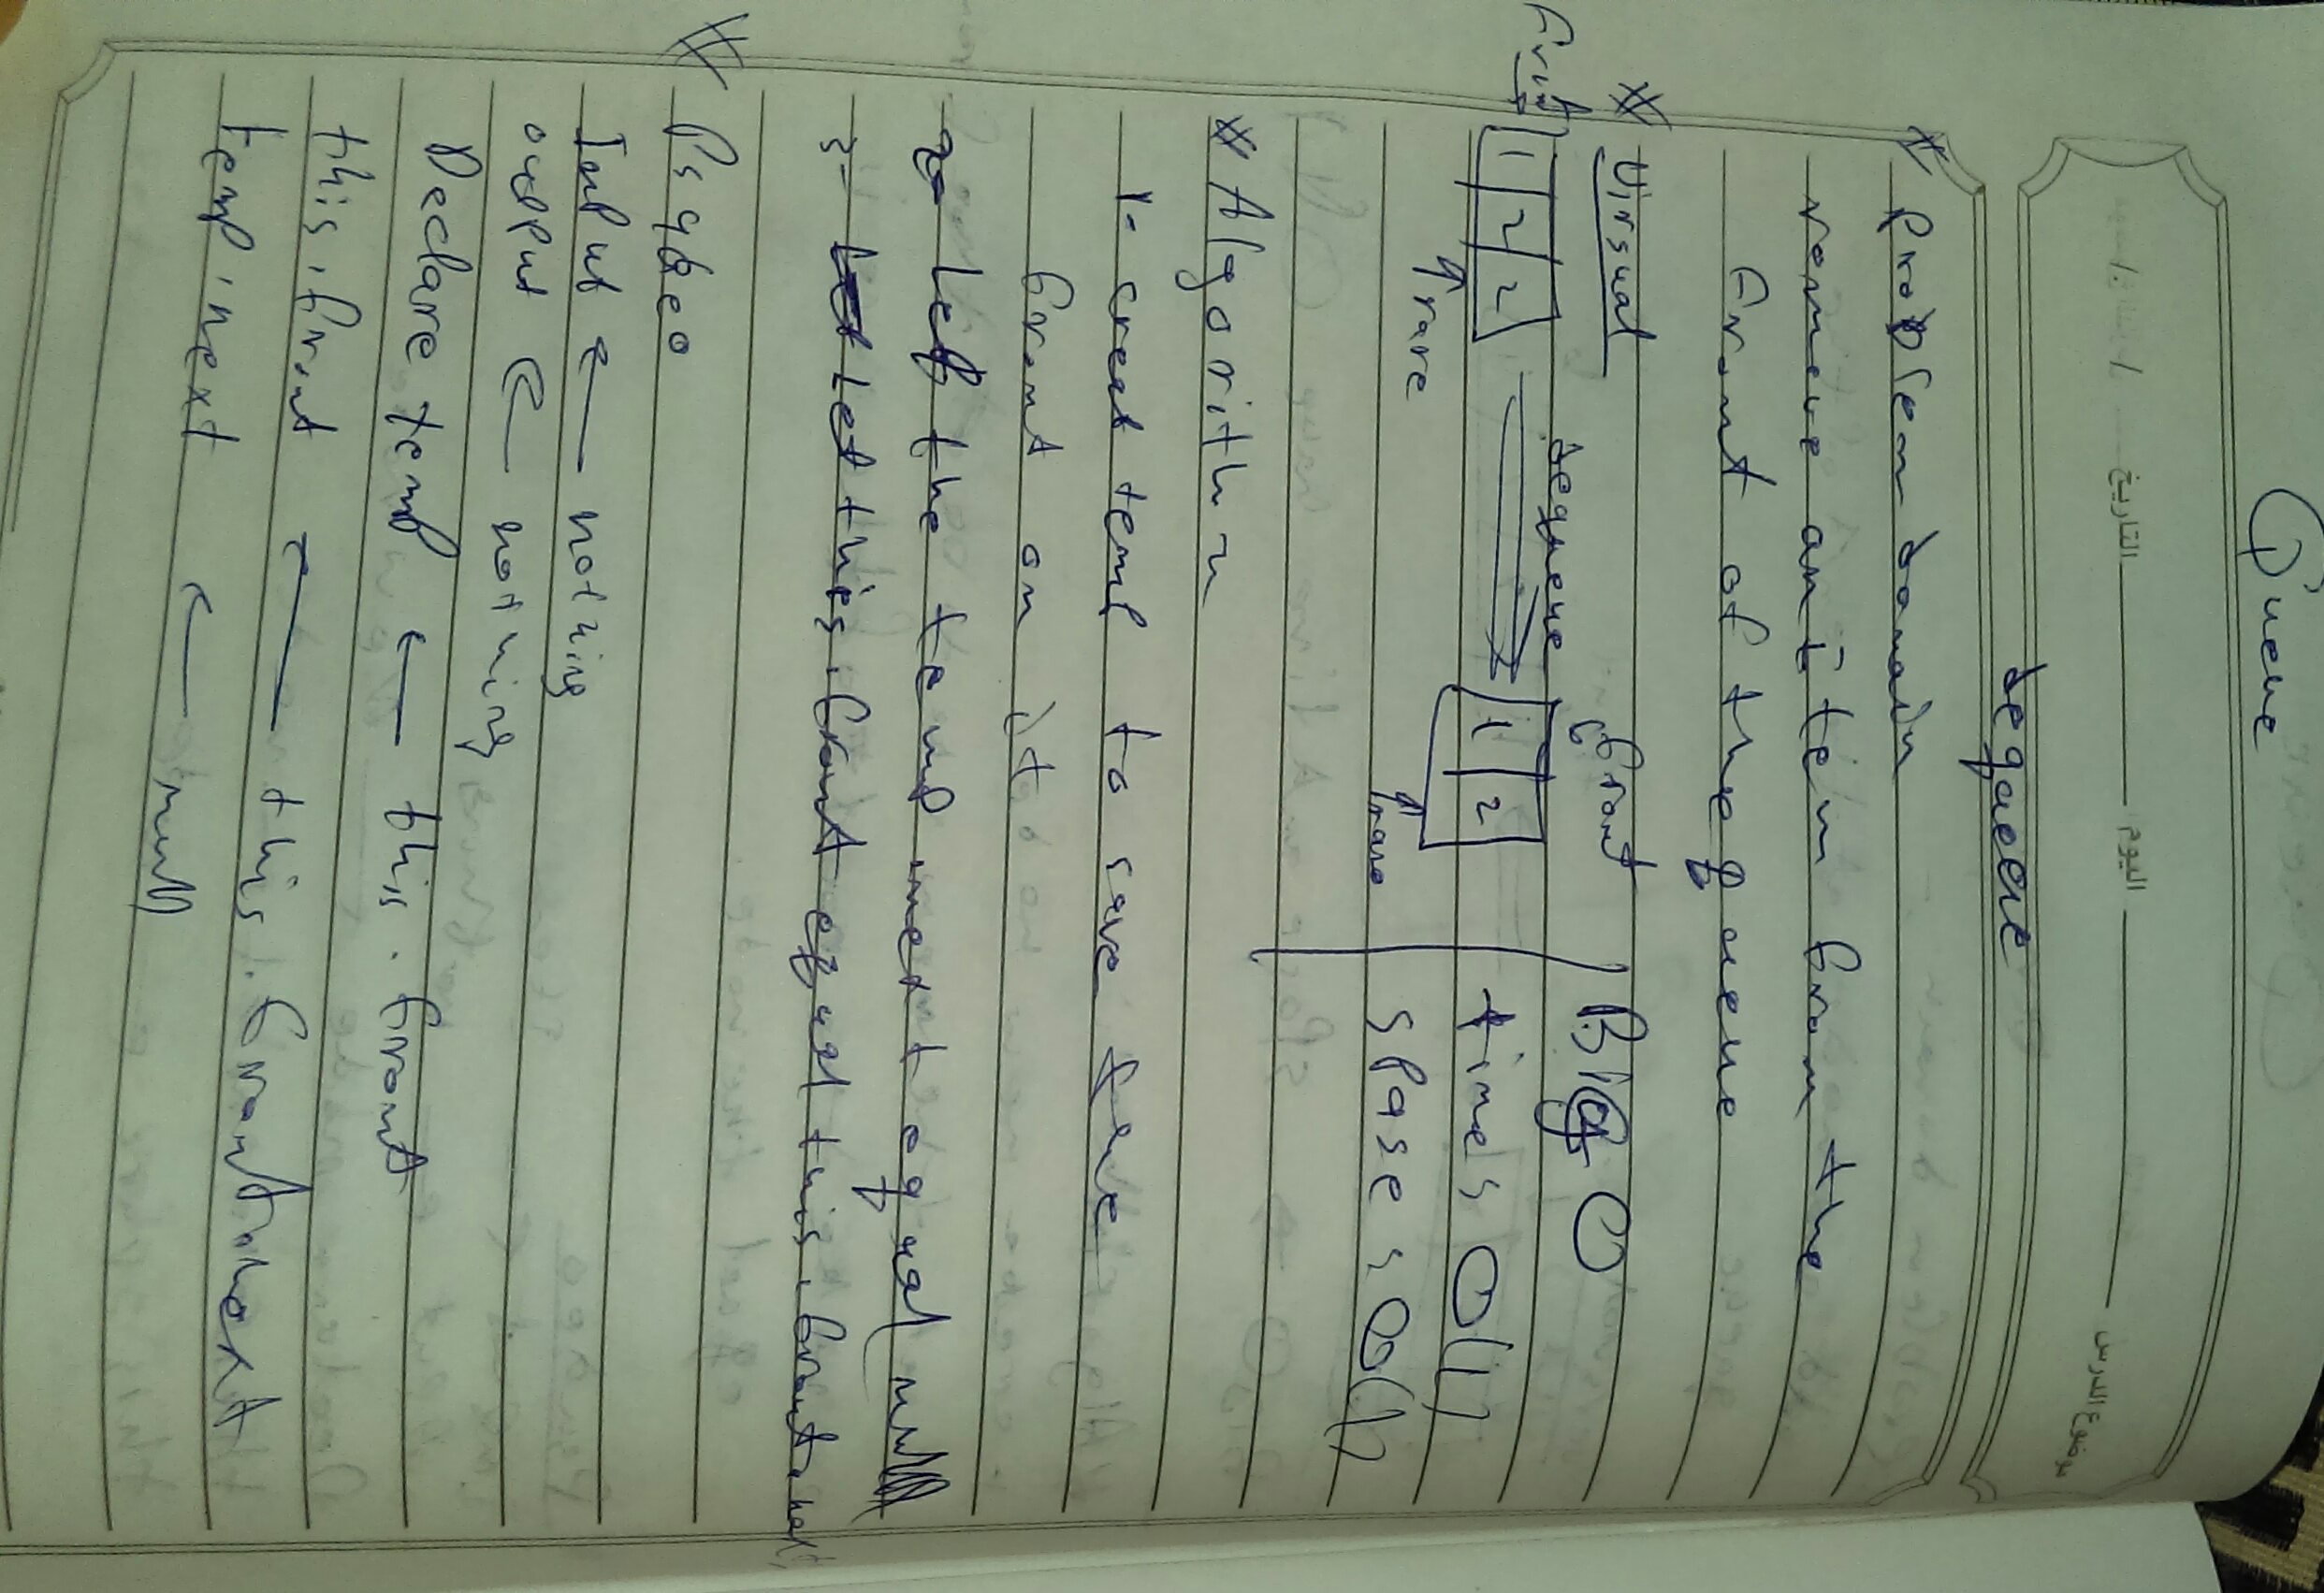 Queue
موضوع الدرس اليوم التاريخ
dequeue
# problem domain
remove an item from the
front of the queue
# Virsual
front
Big O
dequeue
1 2 2
1 2
time s O(1)
rare
rare
space s O(1)
# Algorithm
1- creat temp to save
front on it
2- let the temp .next equal null
3- let this.front equal this.front.next
# Ps ydeo
Input ← nothing
output ← nothing
Declare temp ← this.front
this.front ← this.front.next
temp.next ← null